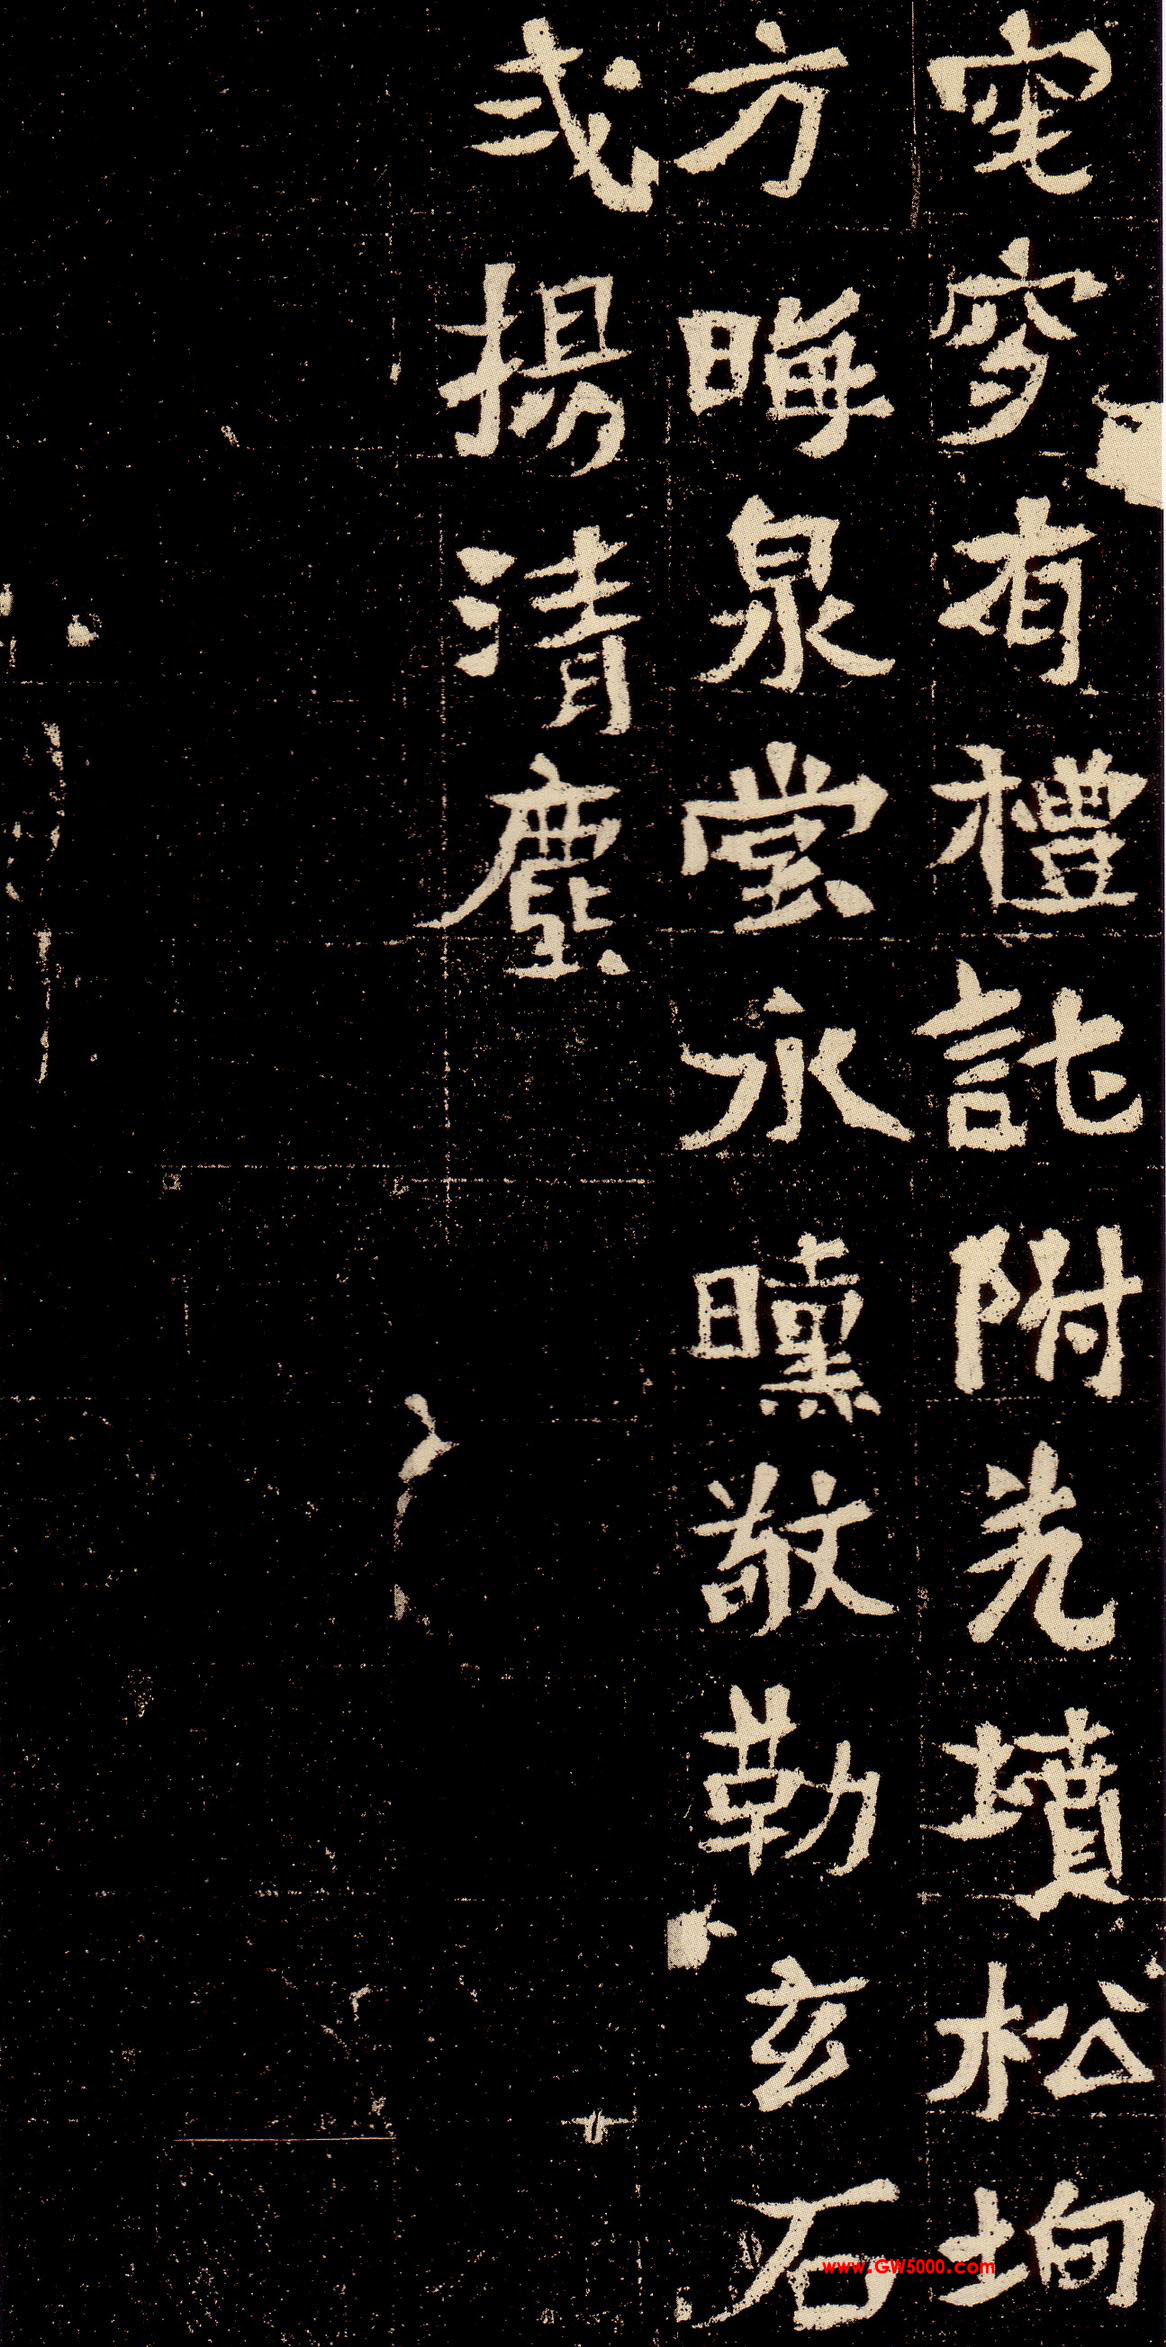 窀穸有禮託附光墳松坰
方晦泉堂永曛敬勒玄石
式揚清塵
www.GW5000.com